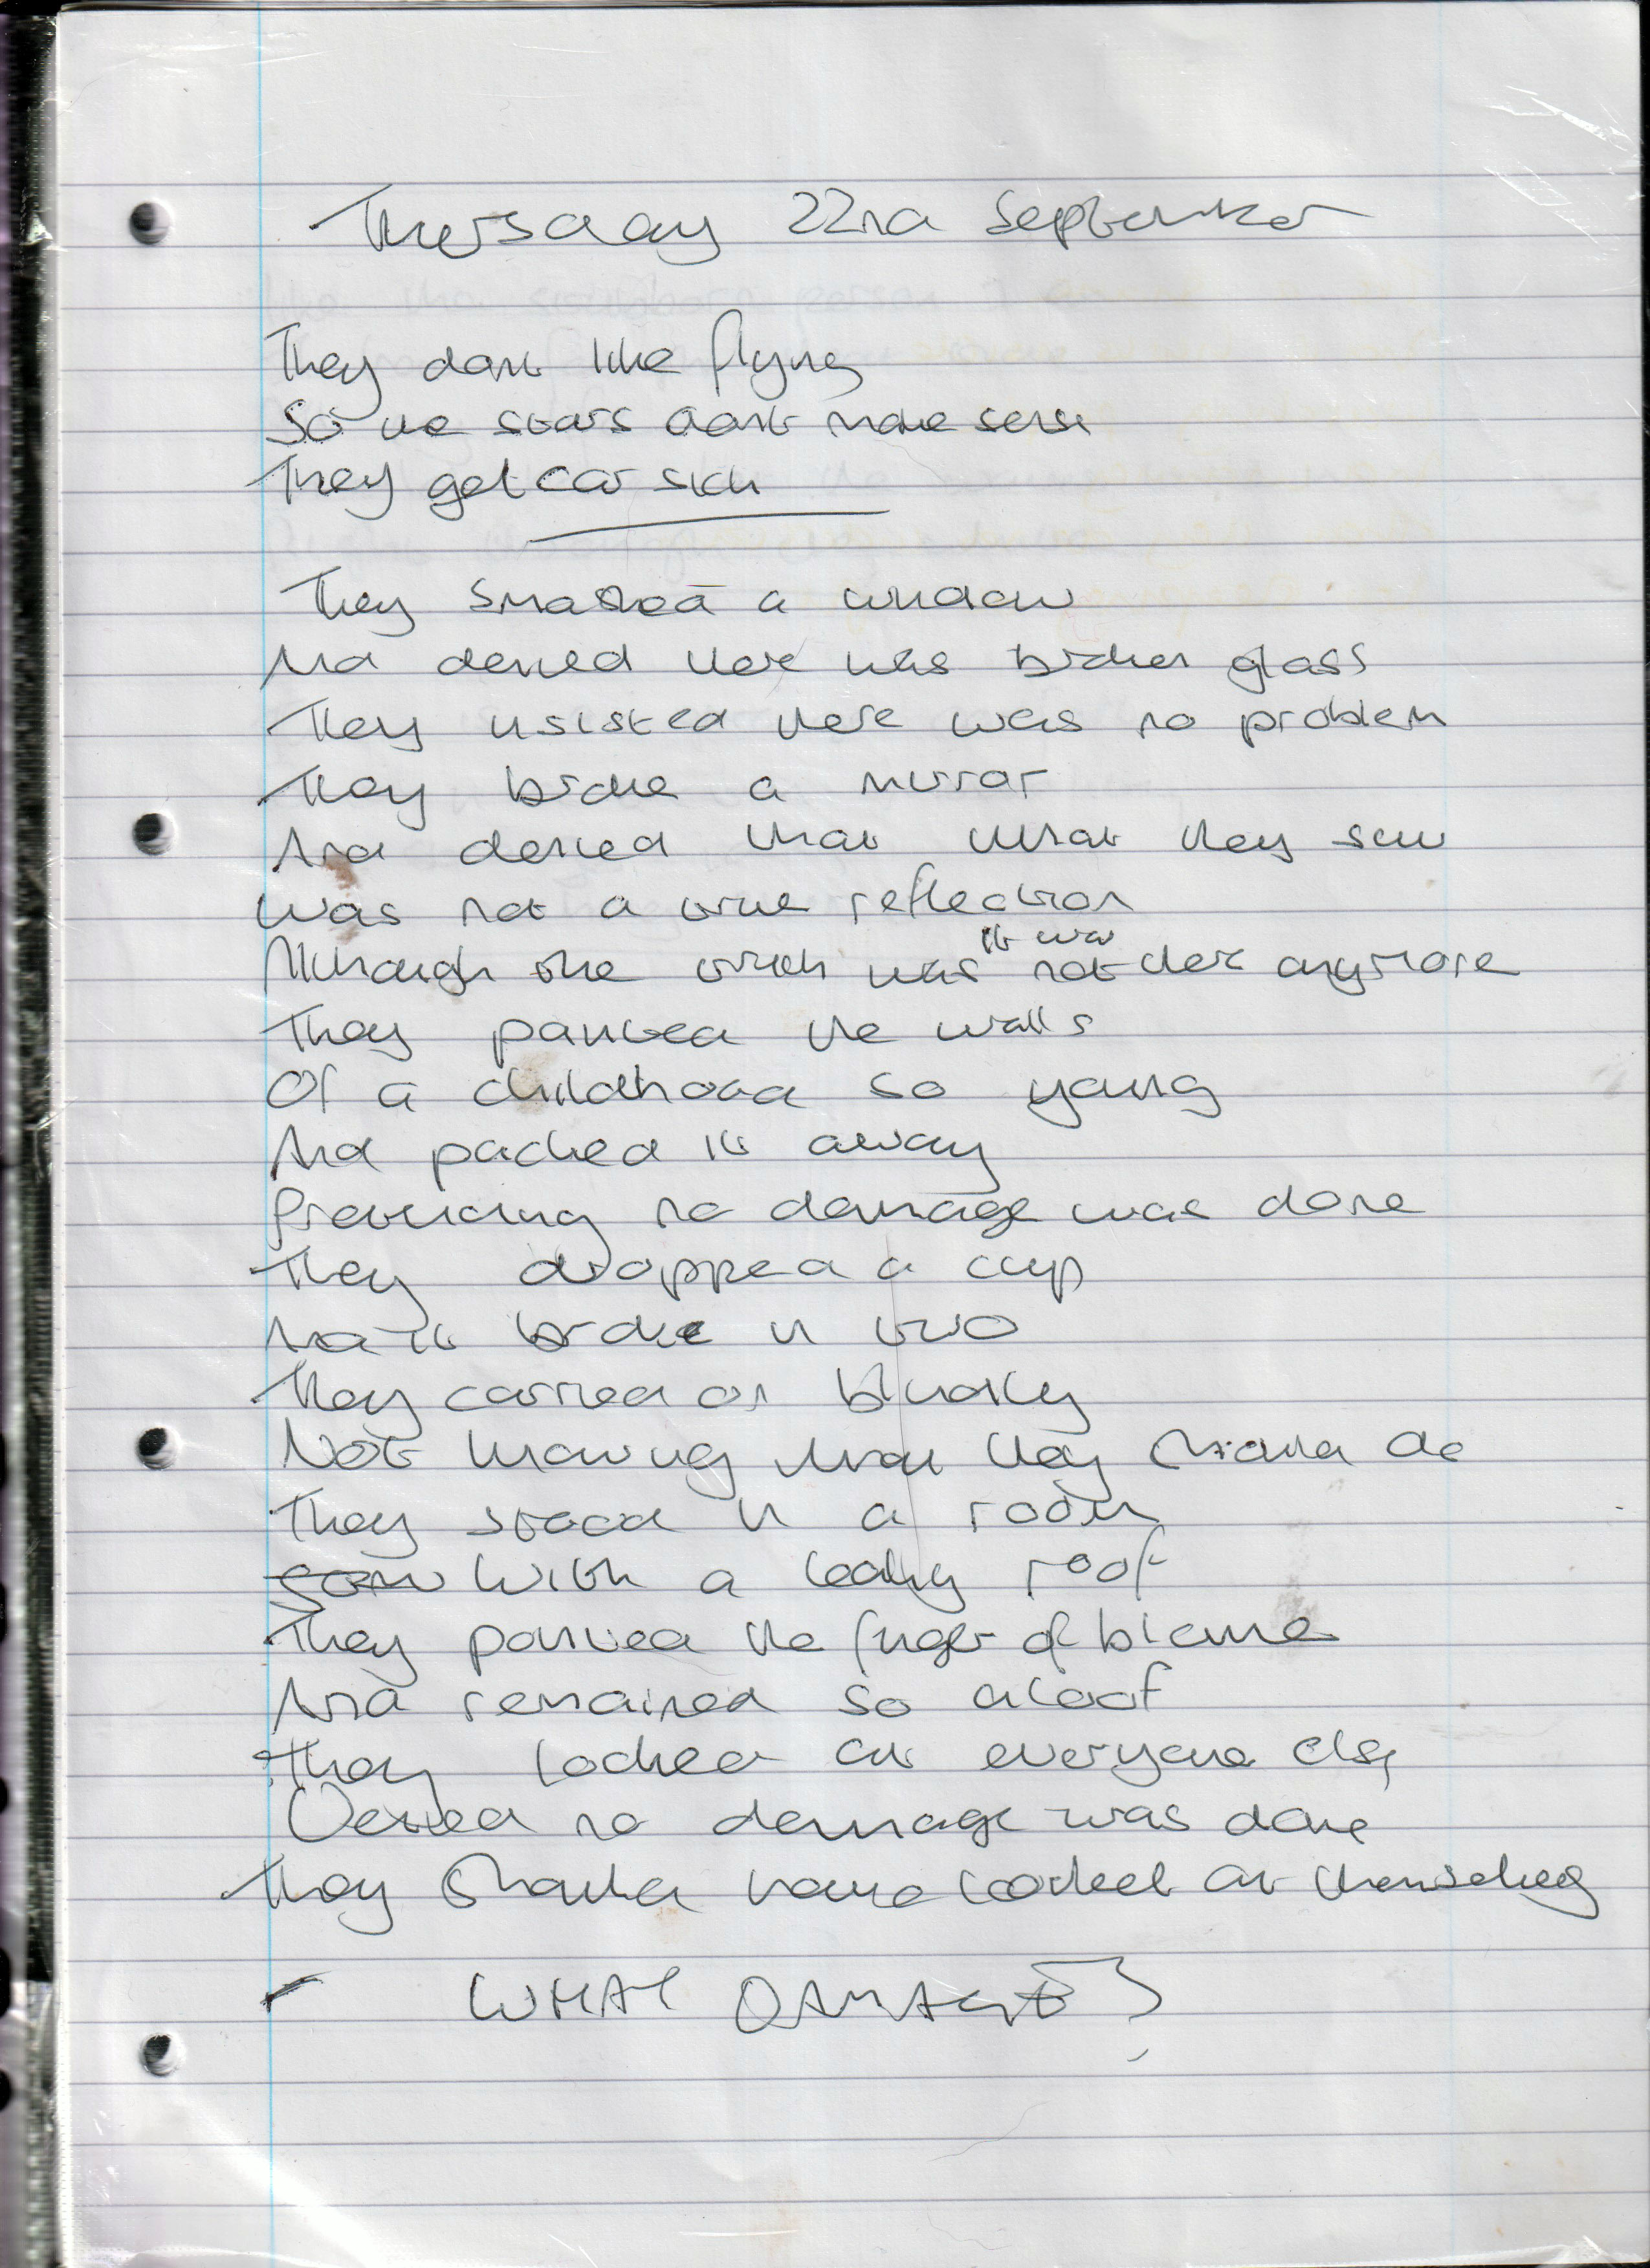 Thursday 22nd September
They dont like flying
So the stars dont make sense
They get car sick
They smashed a window
And denied there was broken glass
They insisted there was no problem
They broke a mirror
And denied that what they saw
was not a true reflection
Although the truth was "it was not there anymore
They painted the walls
Of a childhood so young
And packed it away
Providing no damage was done
They dropped a cup
And it broke in two
They carried on blindly
Not knowing what they should do
They stood in a room
with a leaky roof
They pointed the finger of blame
And remained so aloof
They looked at everyone else
Denied no damage was done
They should have looked at themselves
- WHAT DAMAGE?